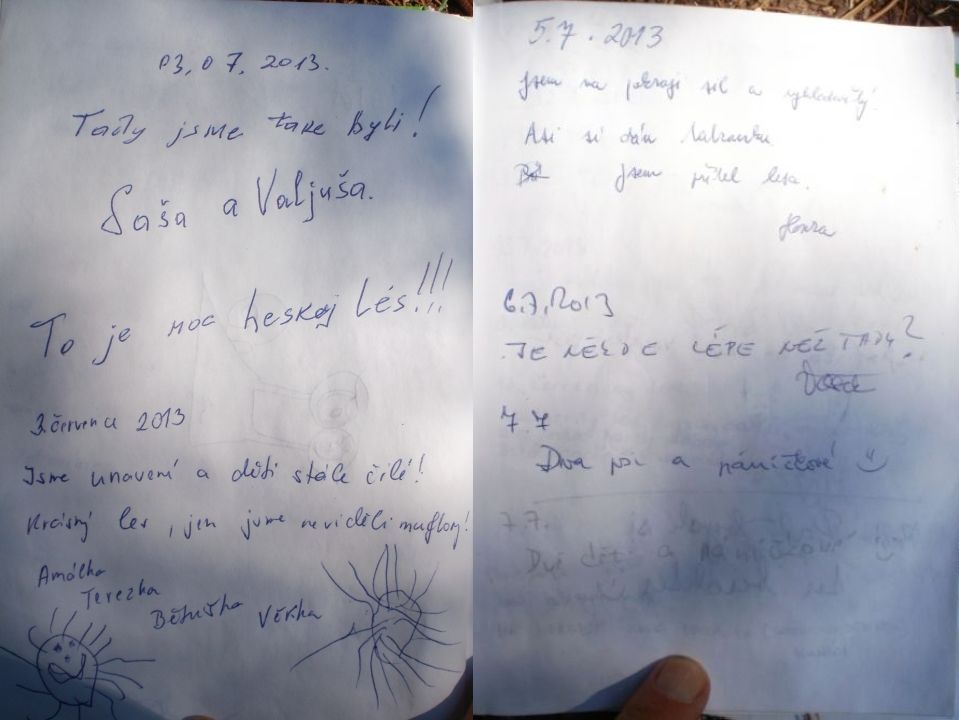 03,07,2013.
Tady jsme take byli!
Saša a Valjuša.
To je moc heskej lés!!!
3. července 2013
Jsme unavení a děti stále čilé!
Krásný les, jen jsme neviděli muflony!
Amálka
Terezka
Bětuška Věrka
5.7.2013
Jsem na pokraji sil a
Asi si dám
Jsem přítel lesa.
Honza
6.7.2013
JE NĚKDE LÉPE NEŽ TADY?
7.7
Dva psi a páníčkové
7.7.
Dvě děti a